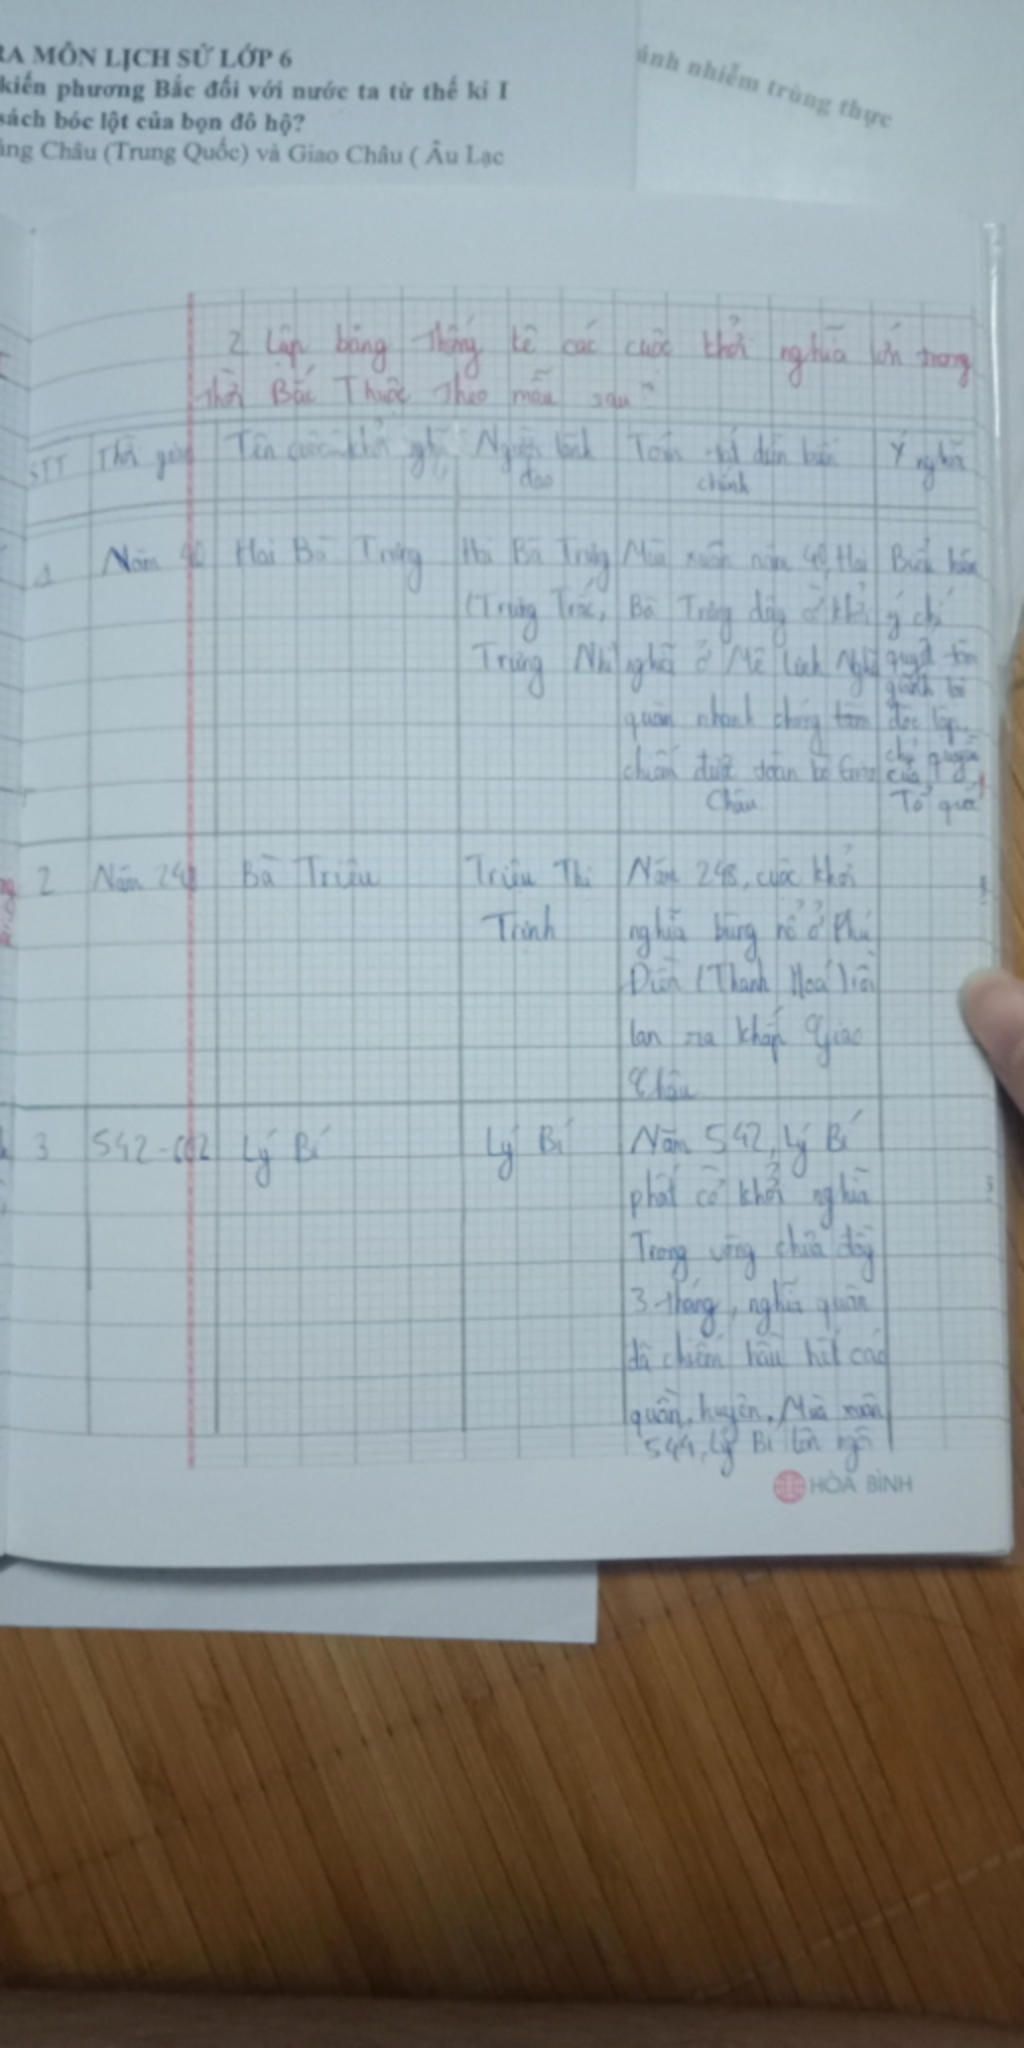 RA MÔN LỊCH SỬ LỚP 6
kiến phương Bắc đối với nước ta từ thế kỉ I
sách bóc lột của bọn đô hộ?
Châu (Trung Quốc) và Giao Châu ( Âu Lạc
ánh nhiễm trùng thực
2 Lập bảng thống kê các cuộc khởi nghĩa lớn trong
thời Bắc Thuộc theo mẫu sau?
STT Thời gian Tên cuộc khởi nghĩa Người lãnh đạo Tóm tắt diễn biến chính Ý nghĩa
1 Năm 40 Hai Bà Trưng
Hai Bà Trưng
(Trưng Trắc,
Trưng Nhị
Mùa xuân năm 40, Hai
Bà Trưng dấy khởi
nghĩa ở Mê Linh Nghĩa
quân nhanh chóng
chiếm được toàn bộ Giao
Châu
ý chí
quyết tâm
giành lại
độc lập,
chủ quyền
của
Tổ quốc
2 Năm 248 Bà Triệu
Triệu Thị
Trinh
Năm 248, cuộc khởi
nghĩa bùng nổ ở Phú
Điền (Thanh Hoá) rồi
lan ra khắp Giao
Châu
3 542-602 Lý Bí Lý Bí
Năm 542, Lý Bí
phất cờ khởi nghĩa
Trong vòng chưa đầy
3 tháng, nghĩa quân
đã chiếm hầu hết các
quận, huyện. Mùa xuân
544, Lý Bí lên ngôi
HÒA BÌNH